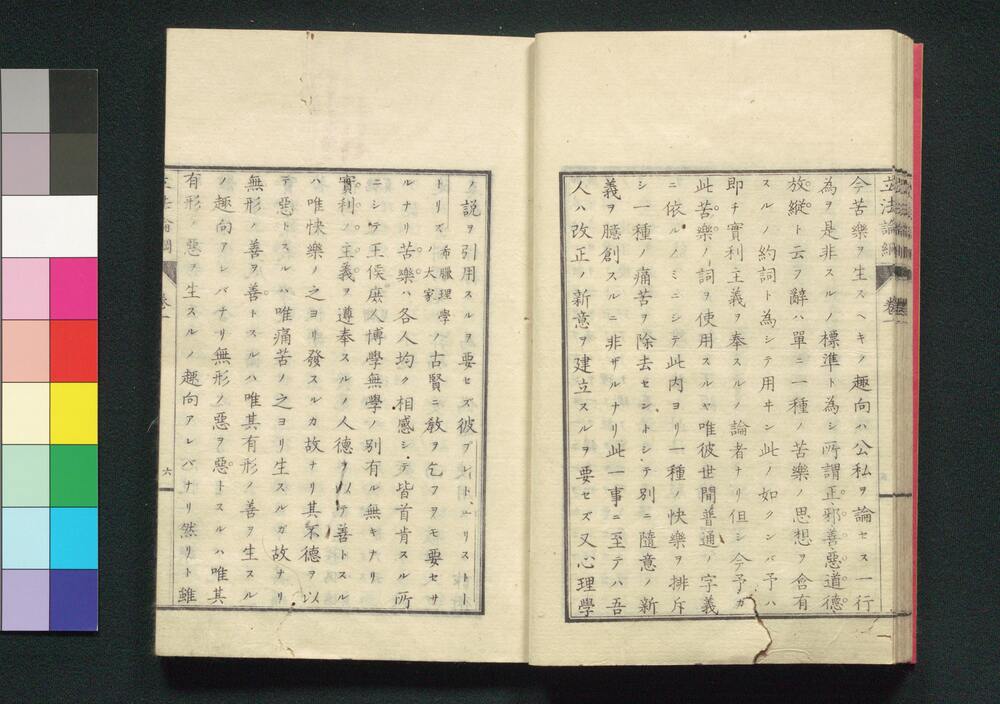 立法論綱
卷一
今苦樂ヲ生スヘキノ趣向ハ公私ヲ論セス一行
為ヲ是非スルノ標準ト為シ所謂正邪善惡道德
放縱ト云フ辭ハ單ニ一種ノ苦樂ノ思想ヲ含有
スルノ約詞ト為シテ用ヰン此ノ如クンバ予ハ
即チ實利主義ヲ奉スルノ論者ナリ但シ今予カ
此苦樂ノ詞ヲ使用スルヤ唯彼世間普通ノ字義
ニ依ルノミニシテ此内ヨリ一種ノ快樂ヲ排斥
シ一種ノ痛苦ヲ除去セントシテ別ニ隨意ノ新
義ヲ臆創スルニ非ザルナリ此一事ニ至テハ吾
人ハ改正ノ新意ヲ建立スルヲ要セズ又心理學
ノ説ヲ引用スルヲ要セズ彼プレトーニリストー
トリズ希臘理學ノ大家ノ古賢ニ敎ヲ乞フヲモ要セサ
ルナリ苦樂ハ各人均ク相感シテ皆首肯スル所
ニシテ王侯庶人博學無學ノ別有ル無キナリ
實利ノ主義ヲ遵奉スルノ人德ヲ以テ善トスル
ハ唯快樂ノ之ヨリ發スルカ故ナリ其不德ヲ以
テ惡トスルハ唯痛苦ノ之ヨリ生スルガ故ナリ
無形ノ善ヲ善トスルハ唯其有形ノ善ヲ生スル
ノ趣向アレバナリ無形ノ惡ヲ惡トスルハ唯其
有形ノ惡ヲ生スルノ趣向アレバナリ然リト雖
六